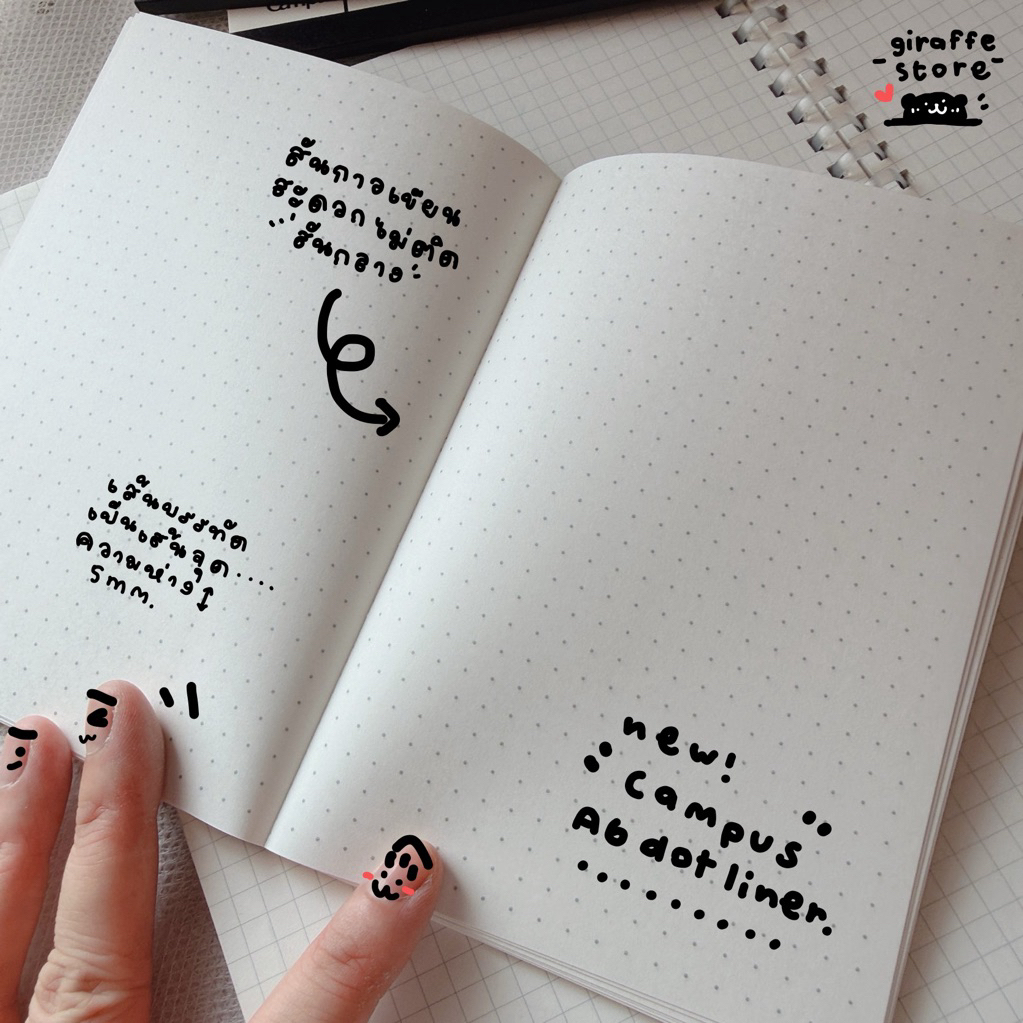 giraffe
store
สันกาวเขียน
สะดวก ไม่ติด
สันกลาง
เส้นบรรทัด
เป็นเส้นจุด....
ความห่าง
5mm.
new!
Campus
A6 dot liner.